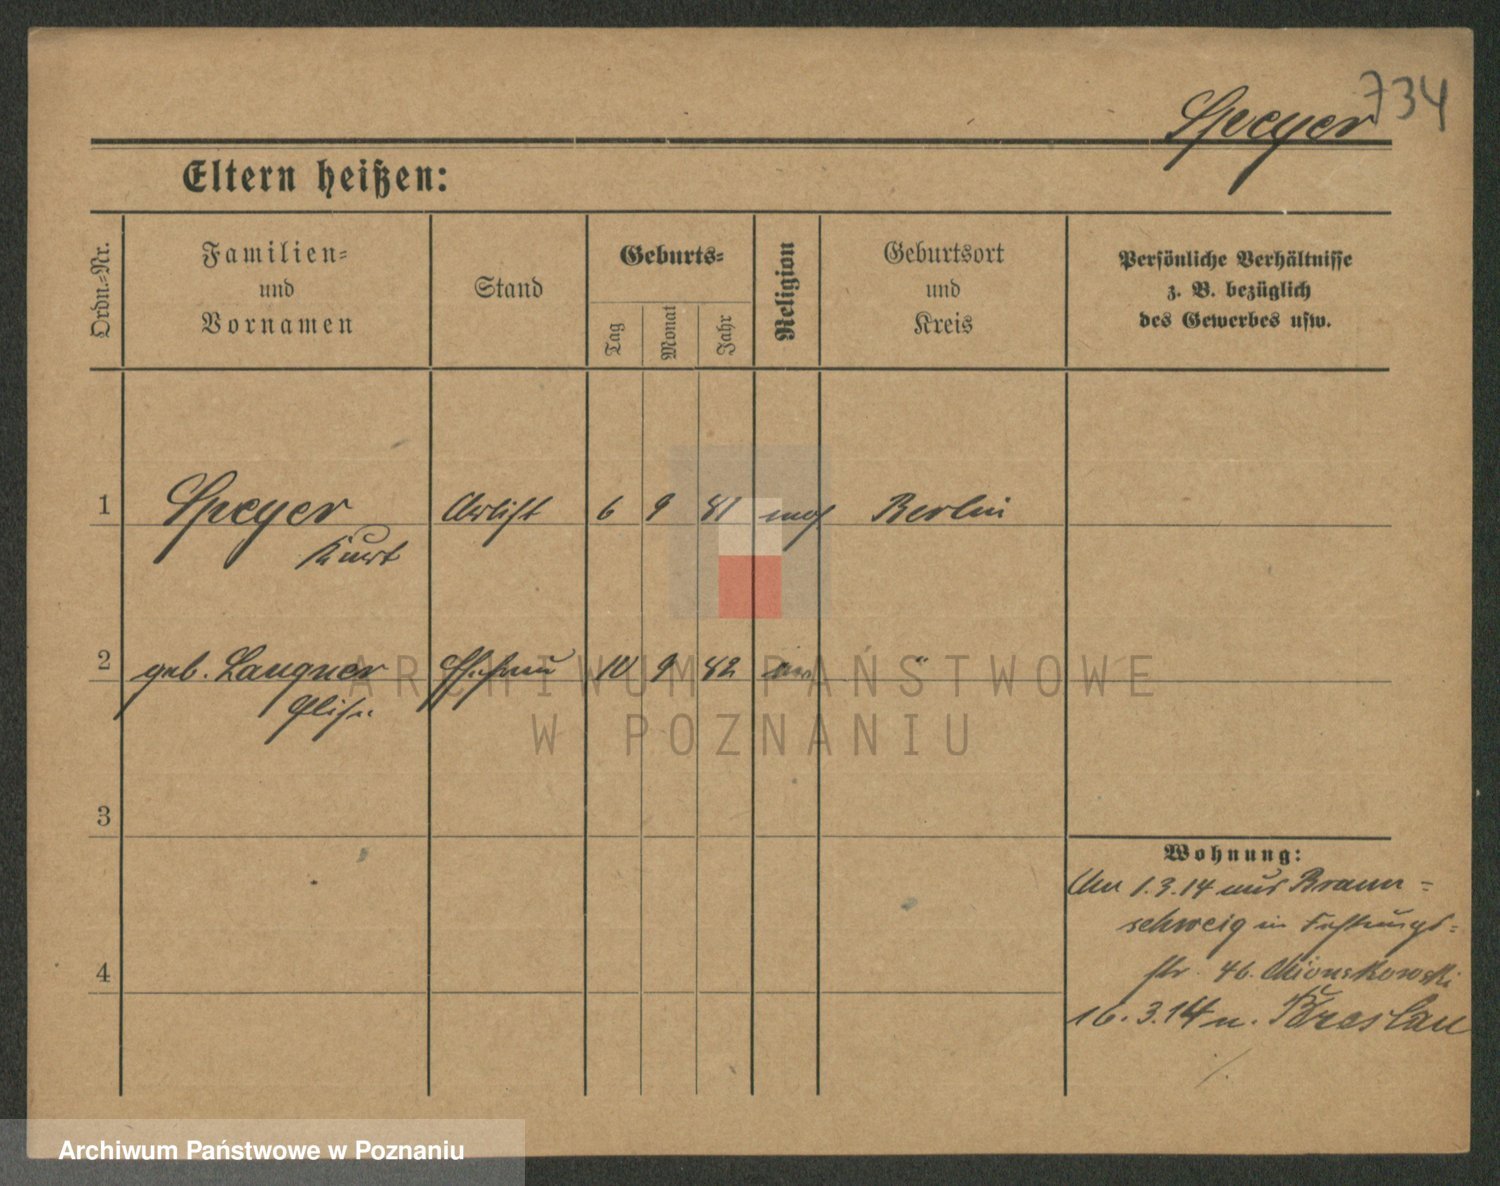 734
Speyer
Eltern heißen:
Ordn.-Nr.
Familien-
und
Vornamen
Stand
Geburts-
Tag
Monat
Jahr
Religion
Geburtsort
und
Kreis
Persönliche Verhältnisse
z. B. bezüglich
des Gewerbes usw.
1 Speyer Artist 6 9 81 mos Berlin
Kurt
2 geb. Langner Ehefrau 10 9 82 "
Elise
3
4
Wohnung:
Am 1.3.14 aus Braun=
schweig in Festungs=
str. 46.
16.3.14 n. Breslau
ARCHIWUM PAŃSTWOWE
W POZNANIU
Archiwum Państwowe w Poznaniu